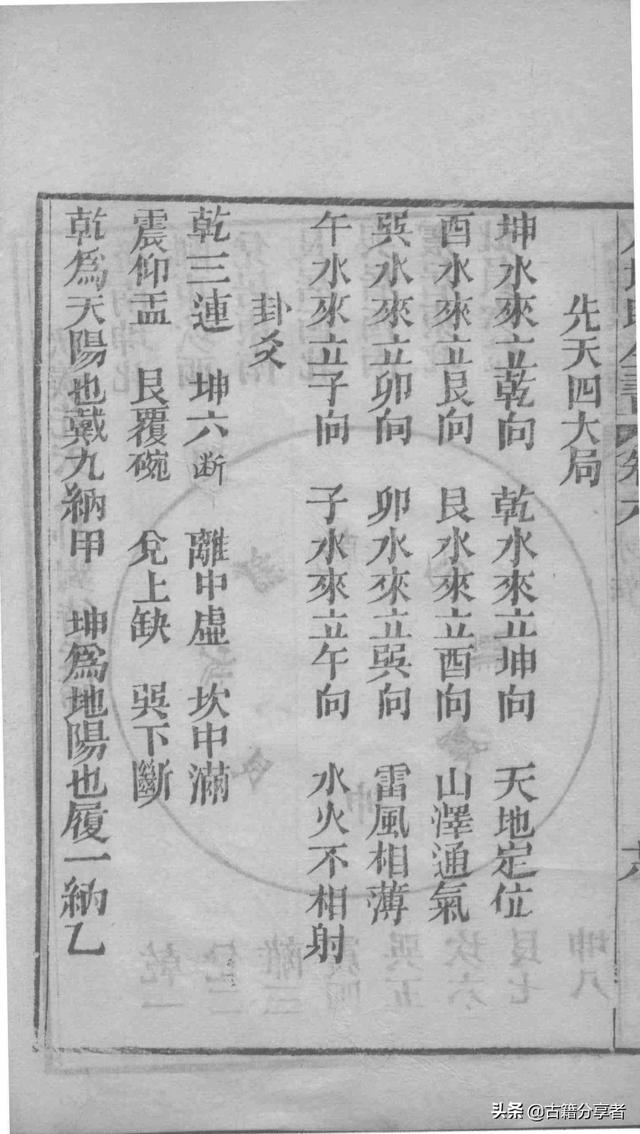 先天四大局
坤水來立乾向　乾水來立坤向　天地定位
酉水來立艮向　艮水來立酉向　山澤通氣
巽水來立卯向　卯水來立巽向　雷風相薄
午水來立子向　子水來立午向　水火不相射
卦爻
乾三連　坤六断　離中虛　坎中滿
震仰盂　艮覆碗　兌上缺　巽下斷
乾爲天陽也戴九納甲　坤爲地陽也履一納乙
头条 @古籍分享者